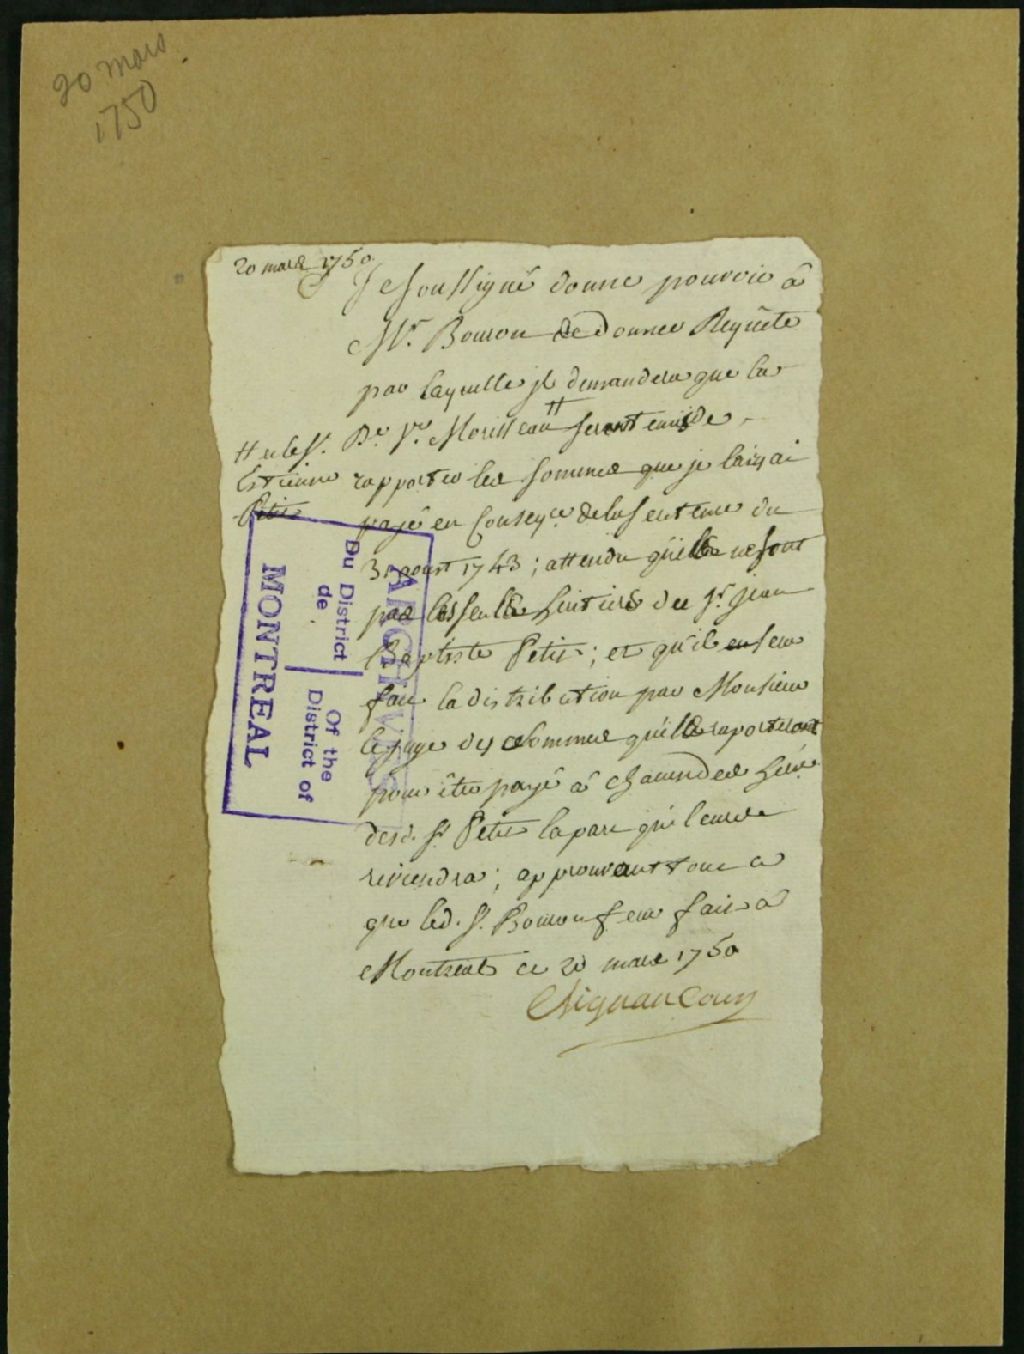 20 mars
1750
20 mars 1750
Je soussigné donne pouvoir à
Mr. Bouron de donner Requête
par laquelle il demandera que la
De. Ve. Morisseau # seront tenus de
# et le Sr.
Estienne
Petit
rapporter les sommes que je leur ai
payé en conseqce. de la sentence du
30 aoust 1743 ; attendu qu'ils ne sont
pas les seuls heritiers du Sr. Jean
Baptiste Petit ; et qu'il en sera
fait la distribution par Monsieur
le juge des sommes qu'ils raporteront
pour être payé à chacun des heri.
dud. Sr. Petit la part qui leur
reviendra ; approuvant tout ce
que led. Sr. Bouron fera fait à
Montreal ce 20 mars 1750
ARCHIVES
Du District
de
Of the
District of
MONTREAL